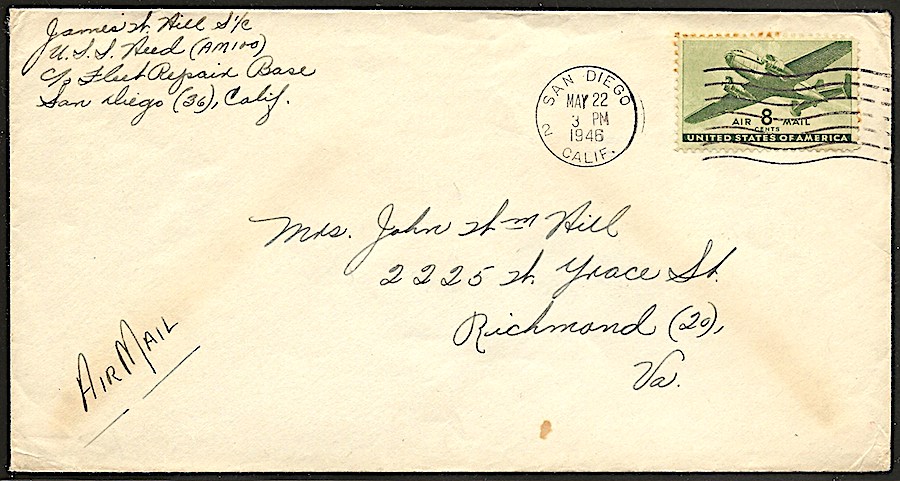 James W. Hill S1/c
U.S.S. Heed (AM100)
c/o Fleet Repair Base
San Diego (36), Calif.
SAN DIEGO
MAY 22
3 PM
1946
2
CALIF.
AIR 8 MAIL
CENTS
UNITED STATES OF AMERICA
Mrs. John Wm Hill
2225 W. Grace St.
Richmond (20),
Va.
AIR MAIL